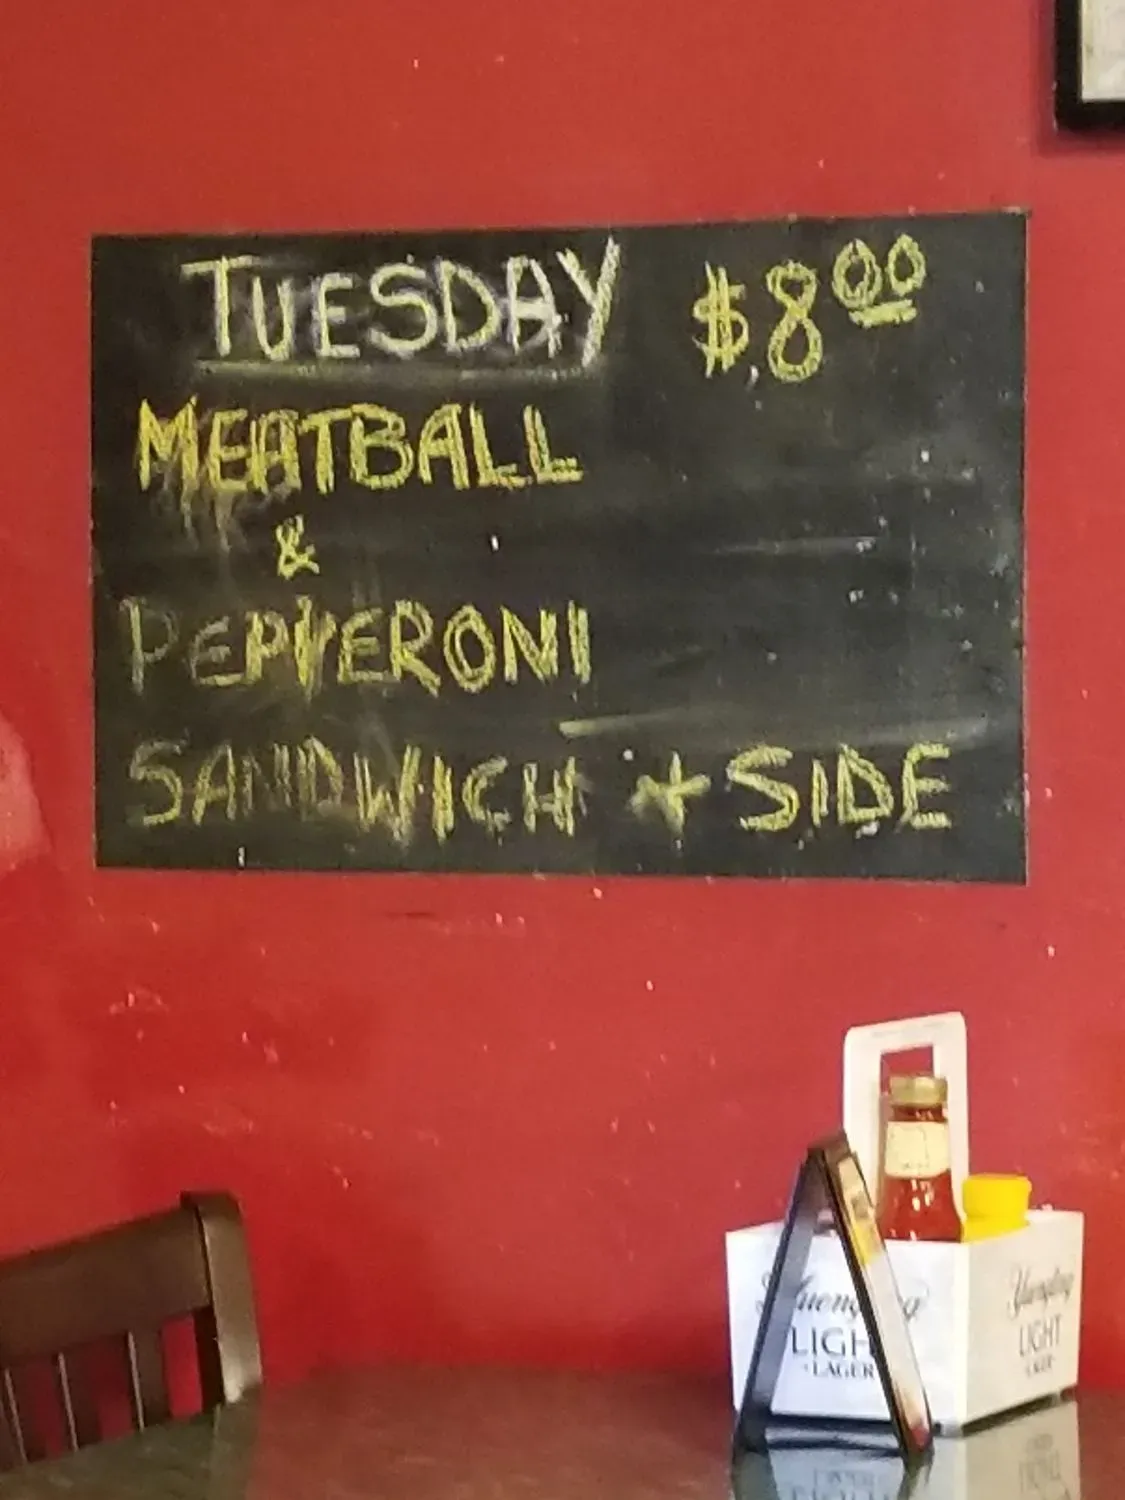 TUESDAY $8.00
MEATBALL
&
PEPPERONI
SANDWICH + SIDE
Yuengling
LIGHT
LAGER
Yuengling
LIGHT
LAGER